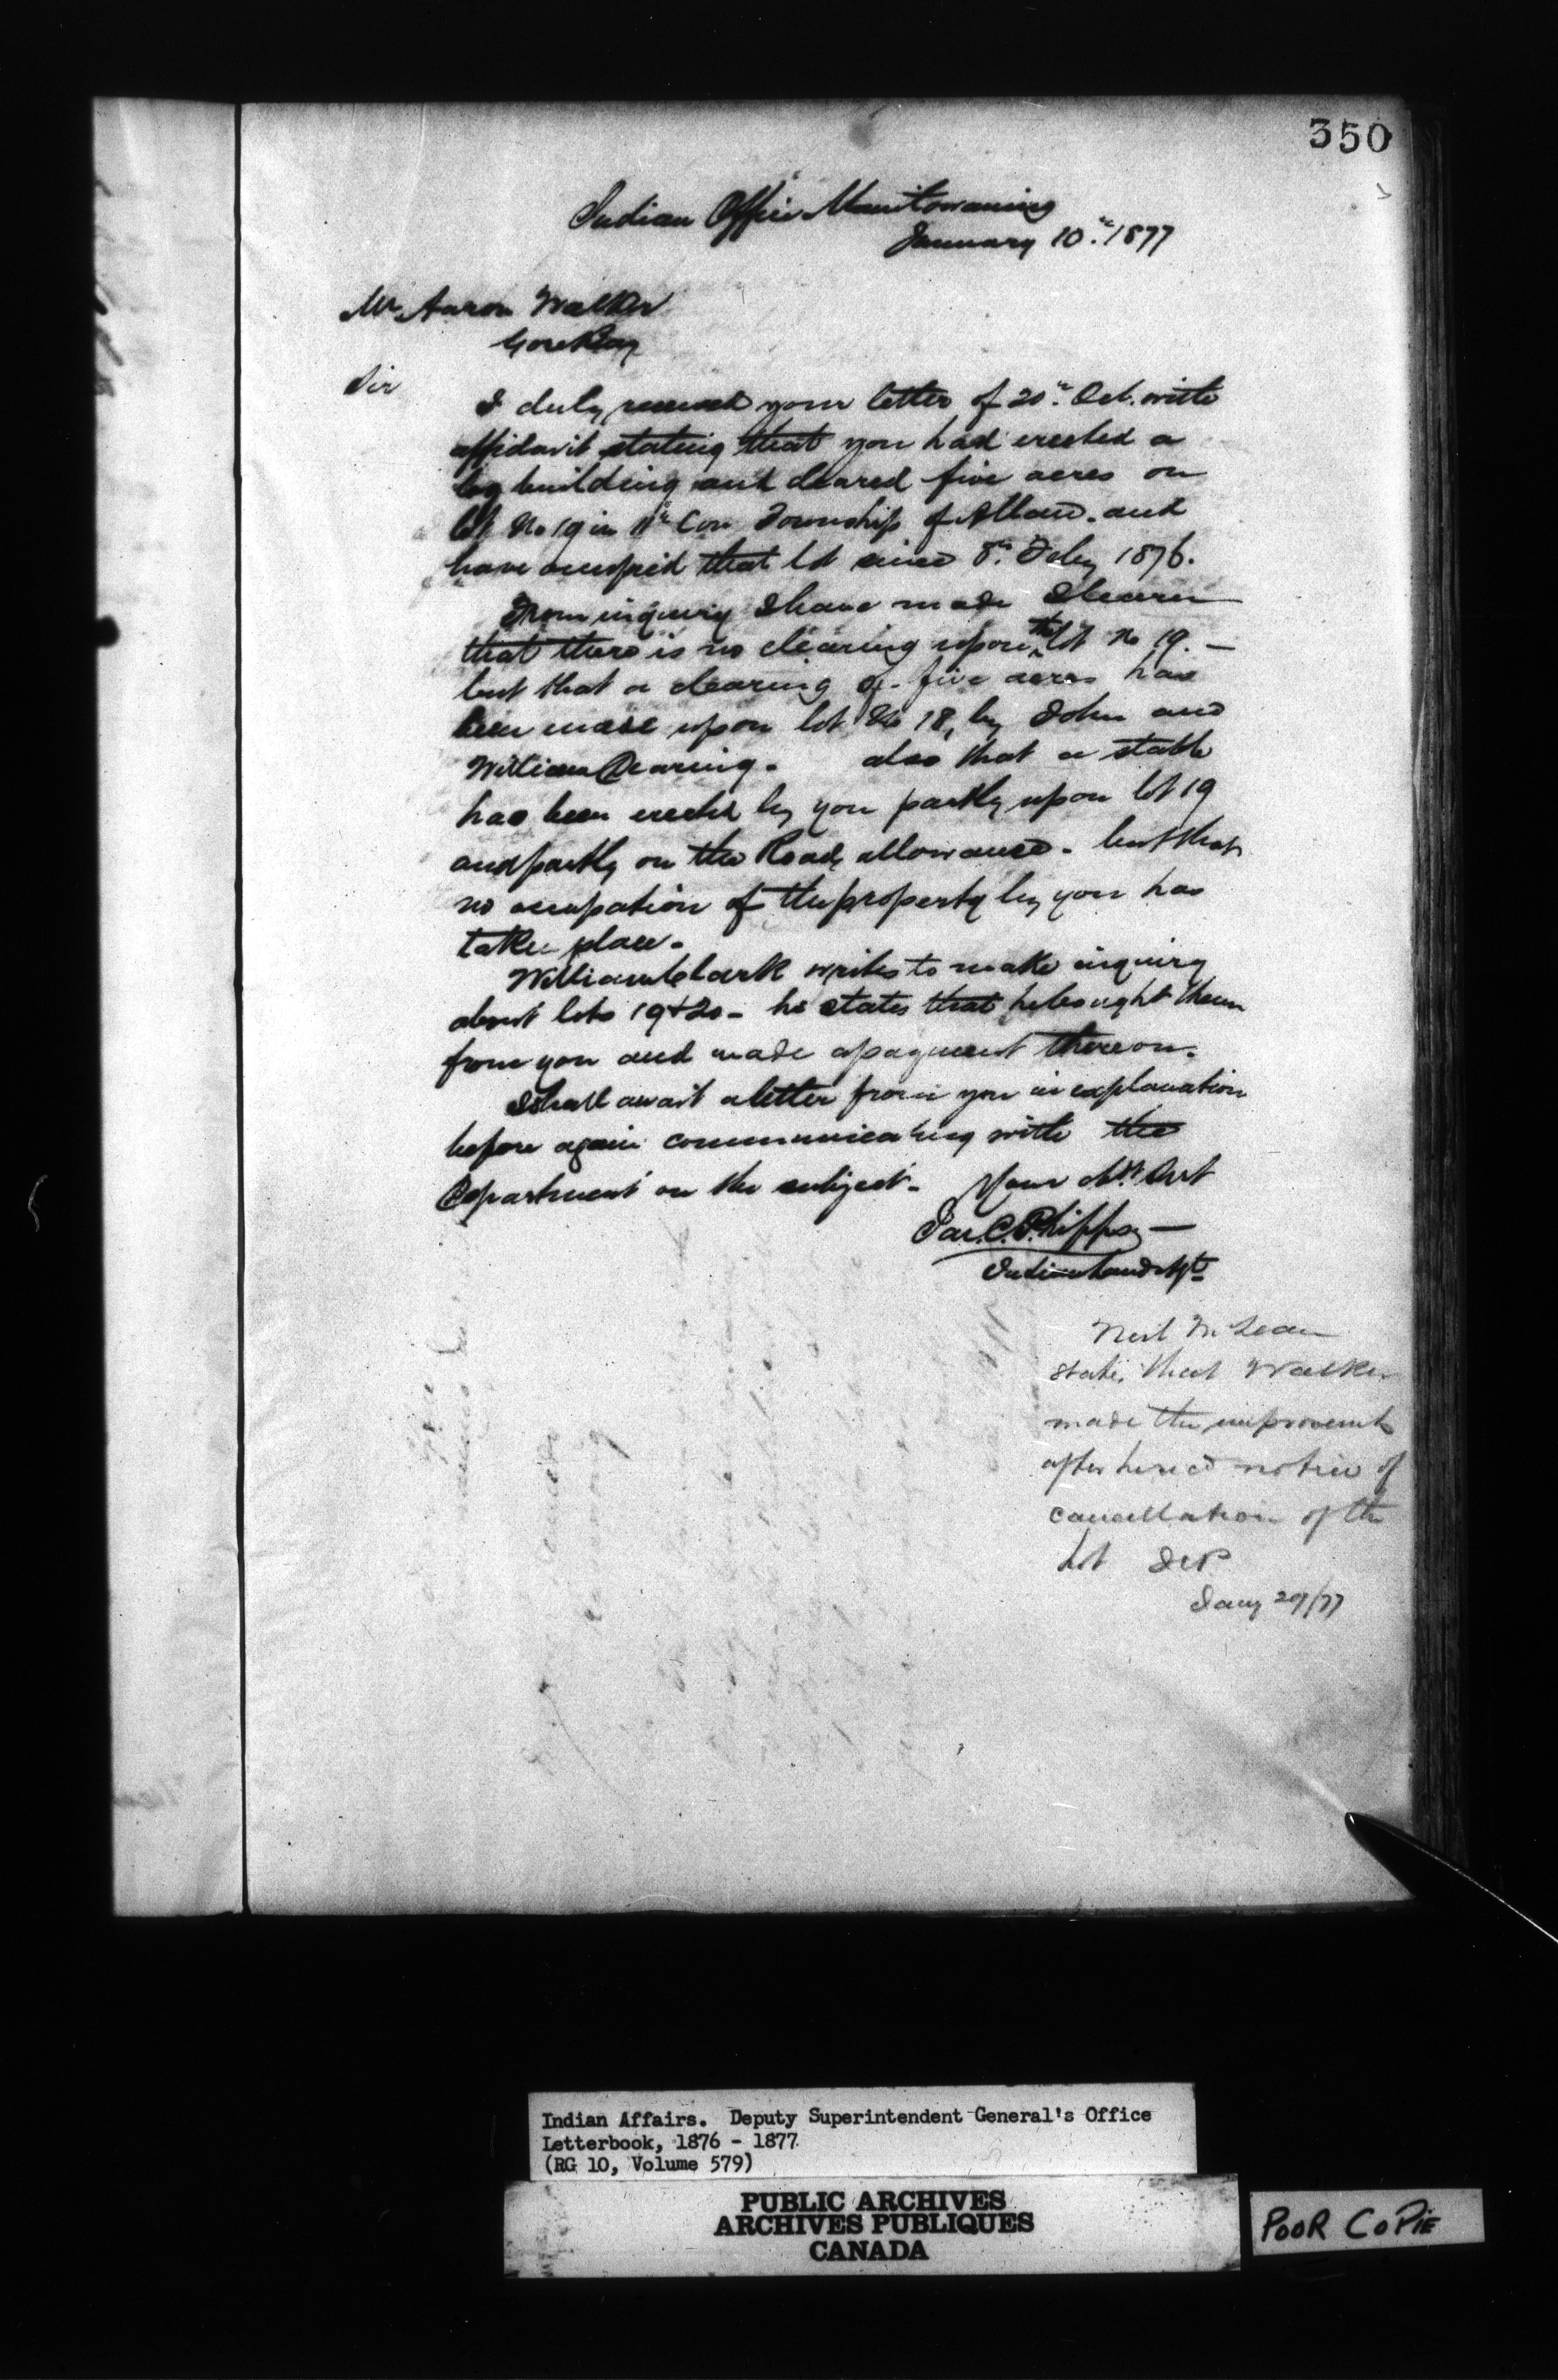 350
Indian Office Manitowaning
January 10th 1877
Mr Aaron Walker
Gore Bay
Sir
I duly received your letter of 20th Oct. with
affidavit stating that you had erected a
log building and cleared five acres on
lot No 19 in 11th Con Township of Allan. and
have occupied that lot since 8th Feby 1876.
From inquiry I have made I learn
that there is no clearing upon the lot No 19. —
but that a clearing of five acres has
been made upon lot No 18, by John and
William Dearing. also that a stable
has been erected by you partly upon lot 19
and partly on the Road allowance. but that
no occupation of the property by you has
taken place.
William Clark writes to make inquiry
about lots 19 & 20 - he states that he bought them
from you and made a payment thereon.
I shall await a letter from you in explanation
before again communicating with the
Department on the subject. Your obt. Svt
Jas. C. Phipps —
Indian Land Agt
Neil McLean
states that Walker
made the improvements
after he recd notice of
cancellation of the
lot JCP
Jany 29/77
Indian Affairs. Deputy Superintendent General's Office
Letterbook, 1876 - 1877
(RG 10, Volume 579)
PUBLIC ARCHIVES
ARCHIVES PUBLIQUES
CANADA
POOR COPIE